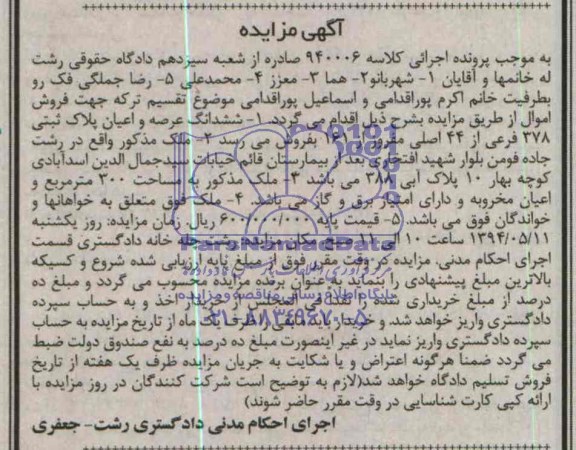 آگهی مزایده
به موجب پرونده اجرائی کلاسه ۹۴۰۰۰۶ صادره از شعبه سیزدهم دادگاه حقوقی رشت
له خانمها و آقایان ۱- شهربانو۲- هما ۳- معزز ۴- محمدعلی ۵- رضا جملگی فک رو
بطرفیت خانم اکرم پوراقدامی و اسماعیل پوراقدامی موضوع تقسیم ترکه جهت فروش
اموال از طریق مزایده بشرح ذیل اقدام می گردد. ۱- ششدانگ عرصه و اعیان پلاک ثبتی
۳۷۸ فرعی از ۴۴ اصلی مفروز از بفروش می رسد ۲- ملک مذکور واقع در رشت
جاده فومن بلوار شهید افتخاری بعد از بیمارستان قائم خیابان سیدجمال الدین اسدآبادی
کوچه بهار ۱۰ پلاک آبی ۳۸۸ می باشد ۳- ملک مذکور به مساحت ۳۰۰ مترمربع و
اعیان مخروبه و دارای امتیاز برق و گاز می باشد. ۴- ملک فوق متعلق به خواهانها و
خواندگان فوق می باشد. ۵- قیمت پایه ۶۰۰/۰۰۰/۰۰۰ ریال. زمان مزایده: روز یکشنبه
۱۳۹۴/۰۵/۱۱ ساعت ۱۰ الی ۱۱ صبح مکان مزایده رشت خانه دادگستری قسمت
اجرای احکام مدنی. مزایده در وقت مقرر فوق از مبلغ پایه ارزیابی شده شروع و کسیکه
بالاترین مبلغ پیشنهادی را بنماید به عنوان برنده مزایده محسوب می گردد و مبلغ ده
درصد از مبلغ خریداری شده را نقداً فی المجلس از خریدار اخذ و به حساب سپرده
دادگستری واریز خواهد شد. و خریدار باید مابقی را ظرف یک ماه از تاریخ مزایده به حساب
سپرده دادگستری واریز نماید در غیر اینصورت مبلغ ده درصد به نفع صندوق دولت ضبط
می گردد ضمناً هرگونه اعتراض و یا شکایت به جریان مزایده ظرف یک هفته از تاریخ
فروش تسلیم دادگاه خواهد شد(لازم به توضیح است شرکت کنندگان در روز مزایده با
ارائه کپی کارت شناسایی در وقت مقرر حاضر شوند)
اجرای احکام مدنی دادگستری رشت- جعفری
ParsNamadData
پایگاه اطلاع رسانی مناقصه و مزایده
۰۲۱-۸۸۳۴۹۶۷۰-۵